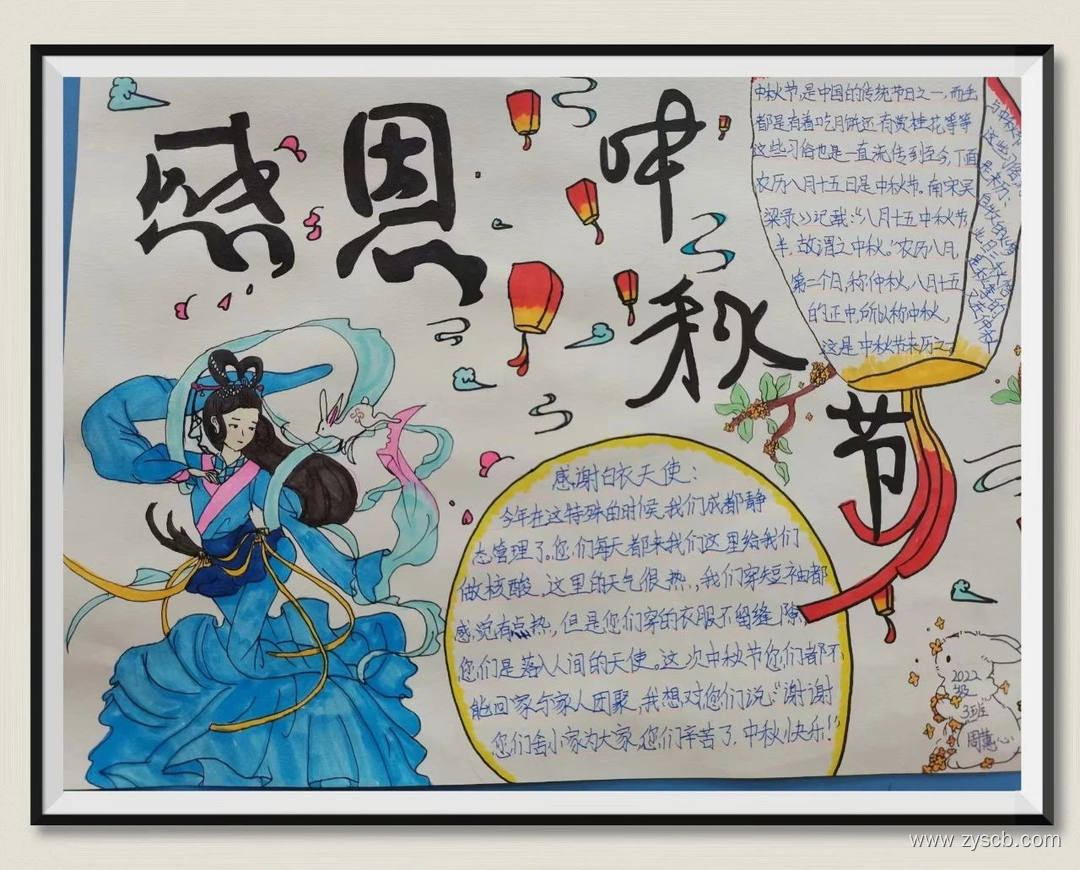 感恩
中
秋
节
中秋节,是中国的传统节日之一,而且
都是有着吃月饼还有赏桂花等等
这些习俗也是一直流传到至今,下面
农历八月十五日是中秋节。南宋吴
梁录》记载:“八月十五中秋节,
半,故谓之中秋。”农历八月,
第二个月,称仲秋,八月十五
的正中,所以称中秋,
这是中秋节来历之一
感谢白衣天使:
今年在这特殊的时候,我们成都静
态管理了。您们每天都来我们这里给我们
做核酸,这里的天气很热,,我们穿短袖都
感觉有点热,但是您们穿的衣服不留缝隙,
您们是落入人间的天使。这次中秋节您们都不
能回家与家人团聚,我想对您们说:“谢谢
您们舍小家为大家,您们辛苦了,中秋快乐!”
2022
级
3班
周慧心
www.zyscb.com